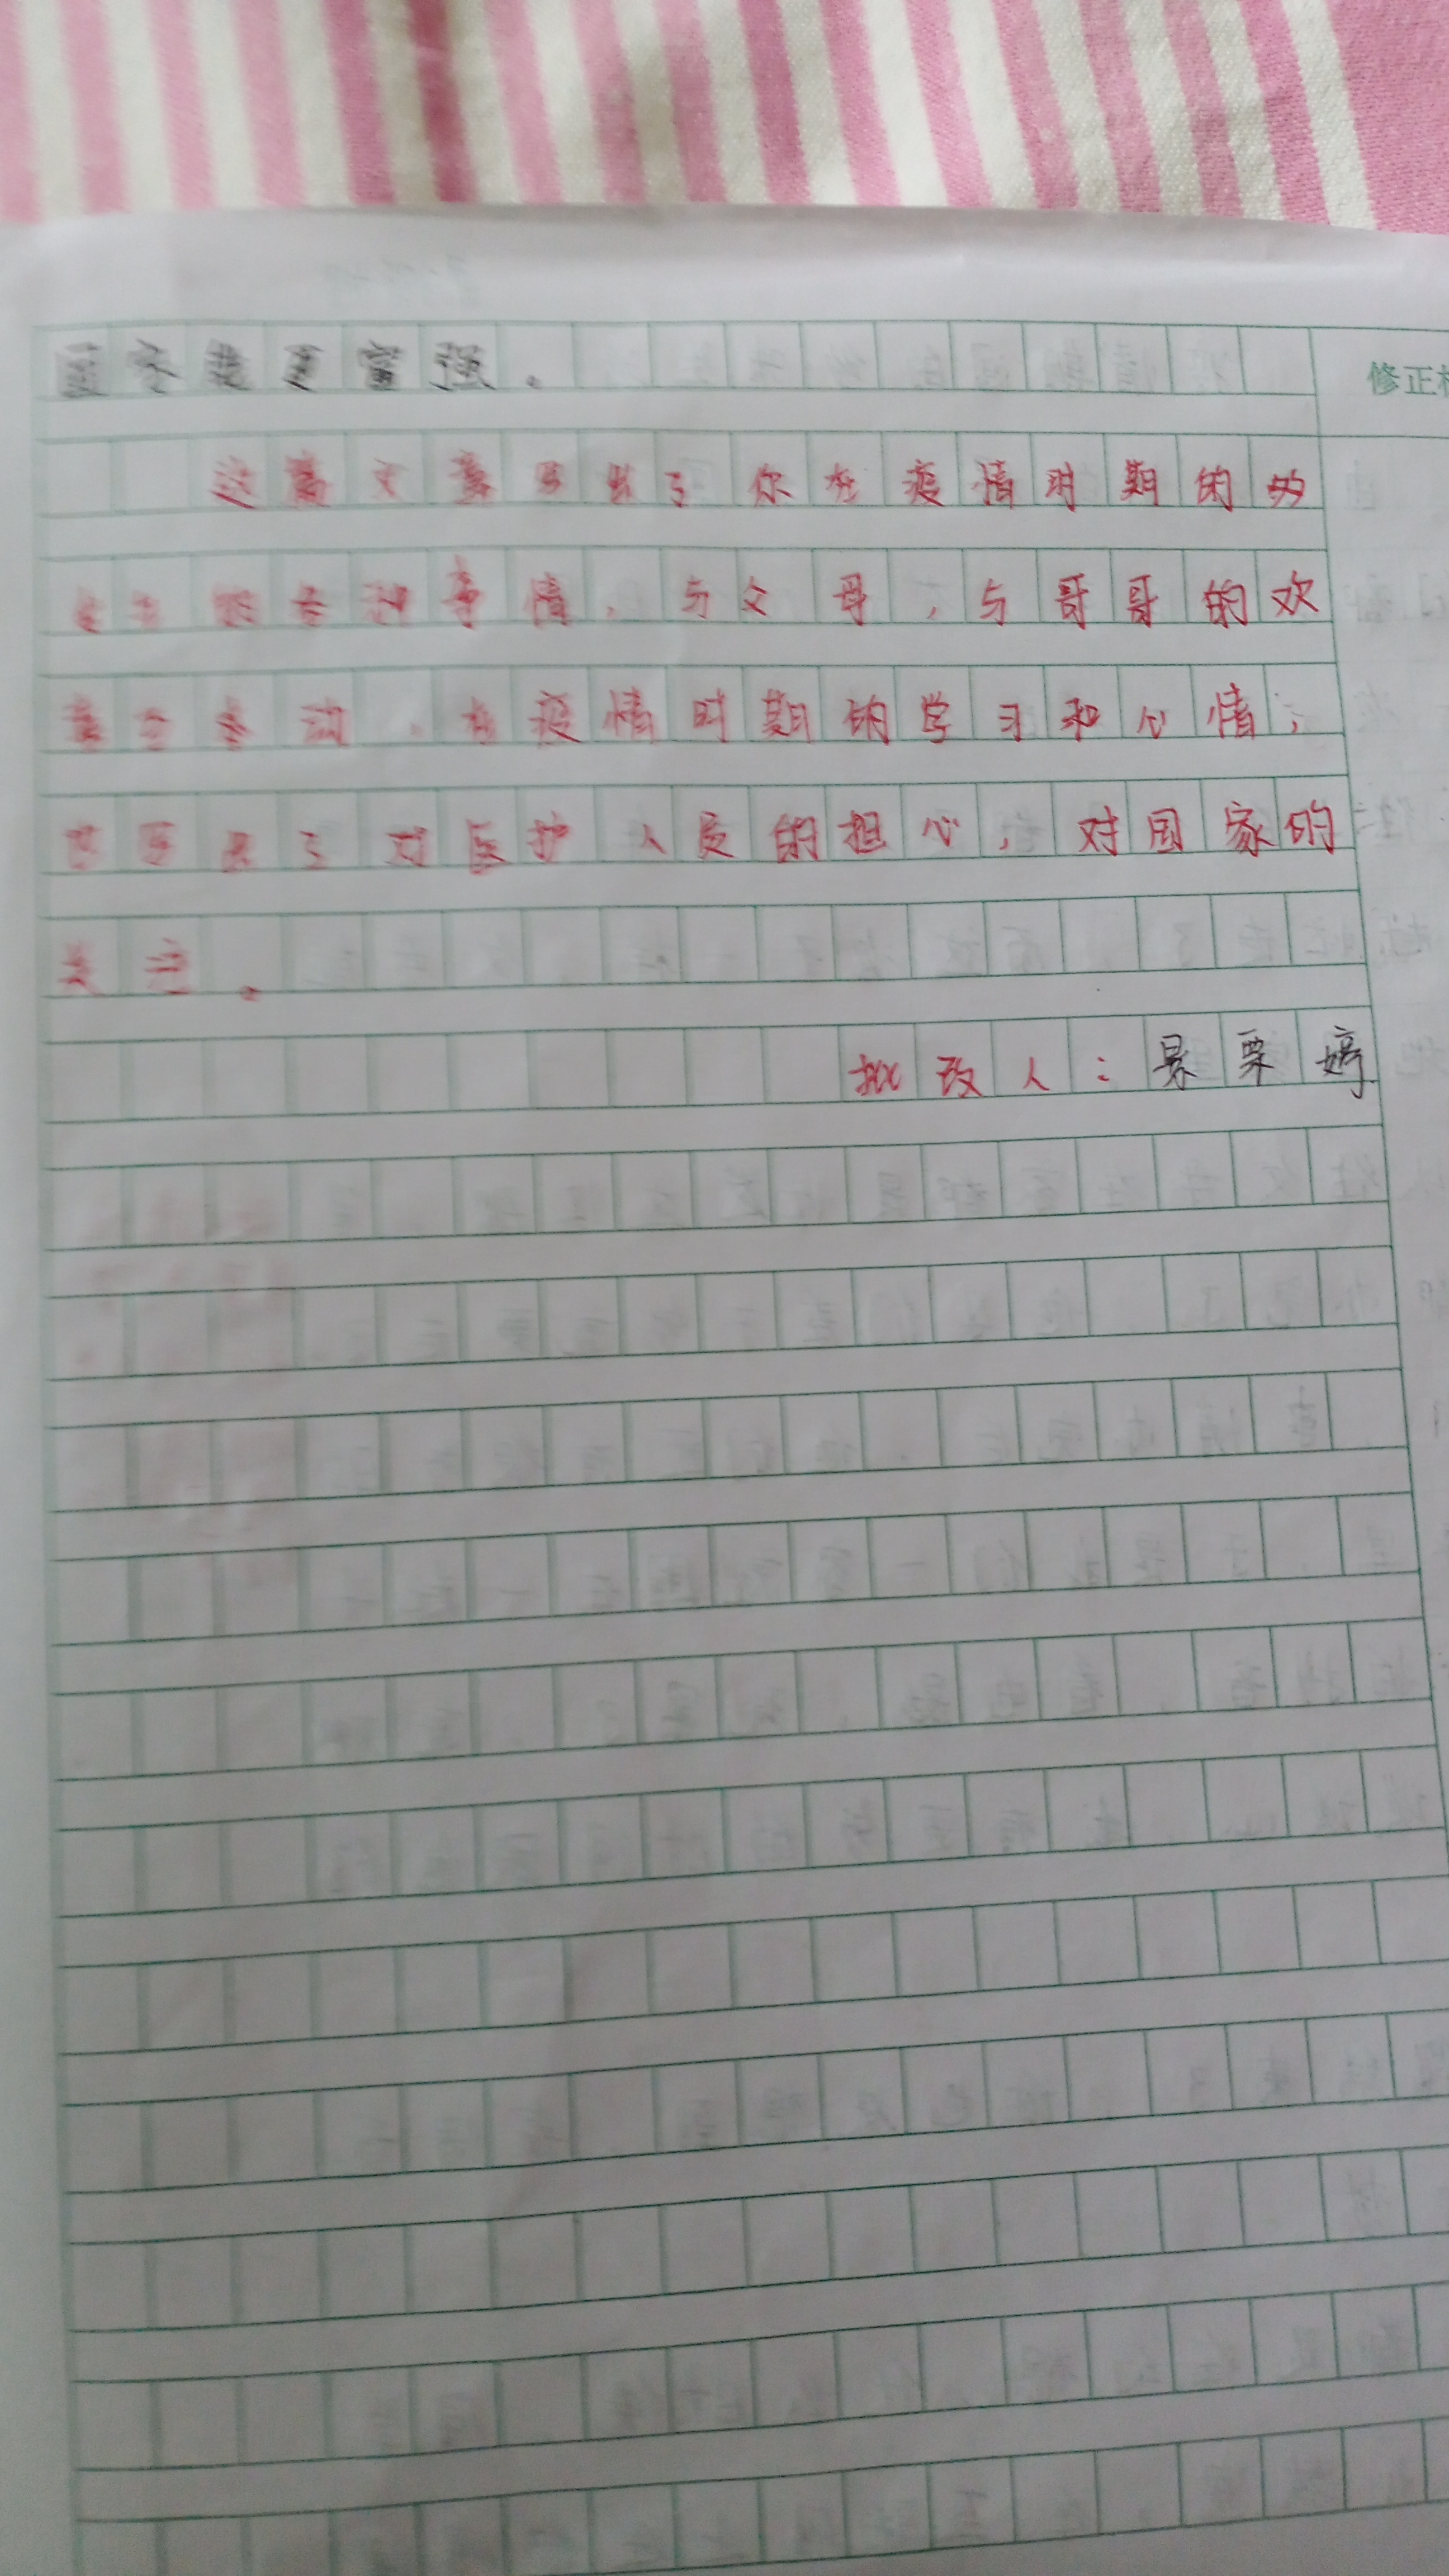 国家越更富强。
修正
这篇文章写出了你在疫情时期的
发生的各种事情,与父母,与哥哥的欢
声互动,在疫情时期的学习和心情;
也写出了对医护人员的担心,对国家的
关注。
批改人:景栗婷